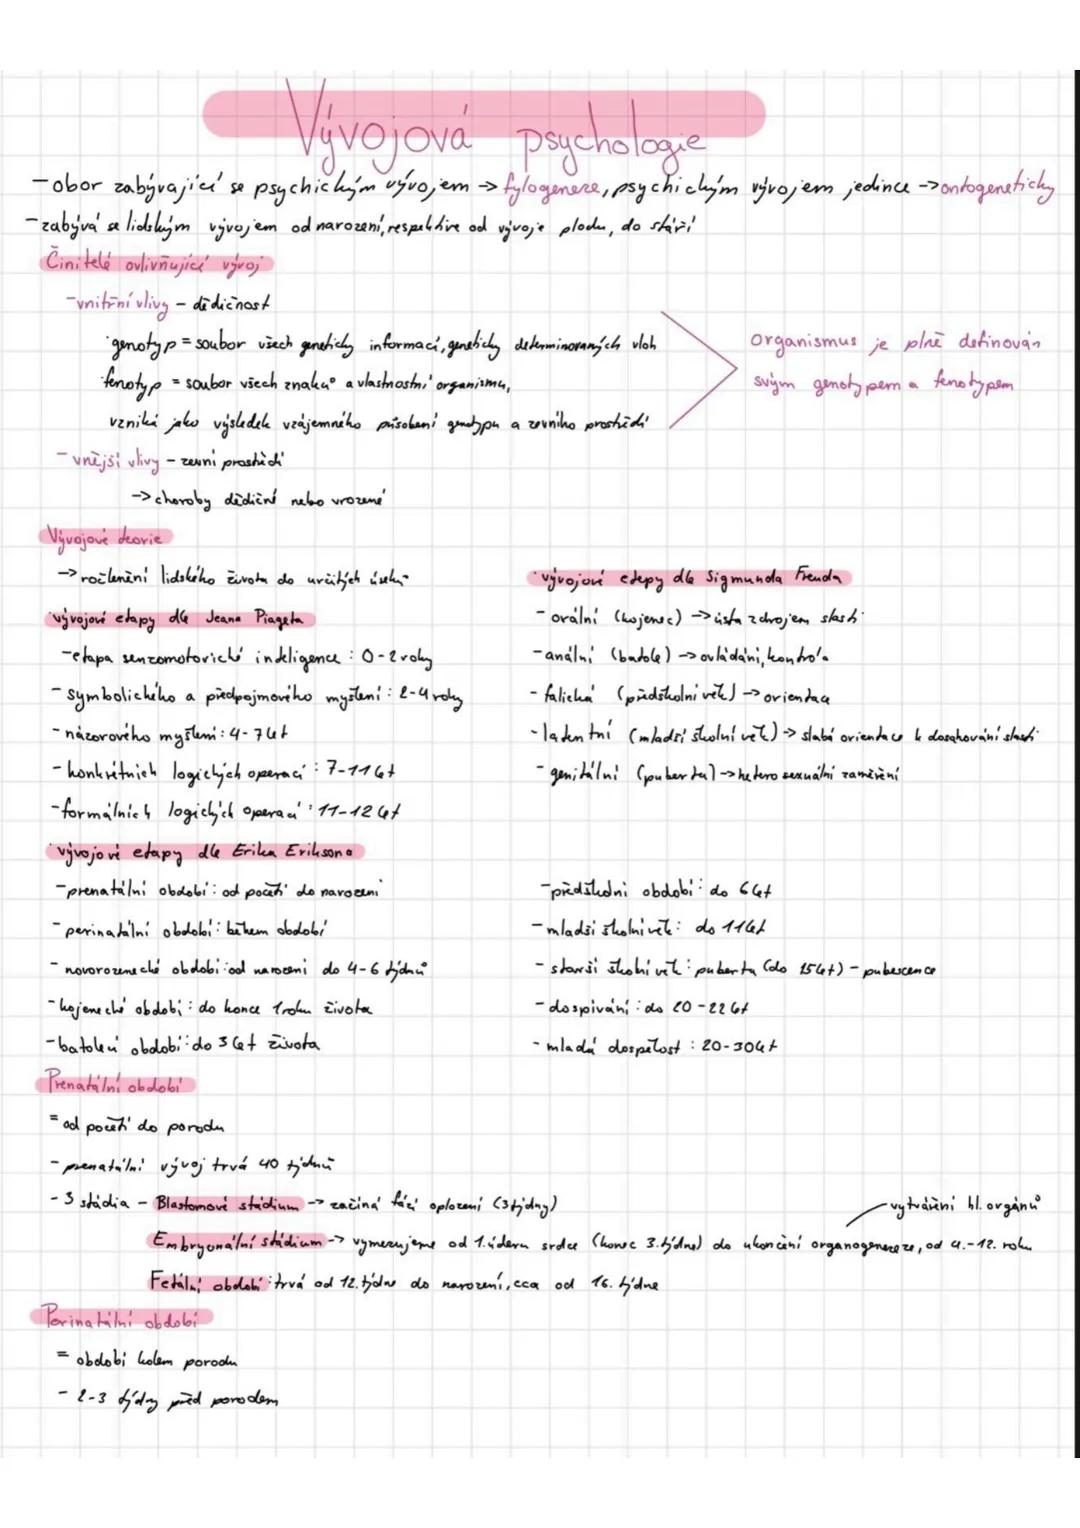 Vývojová psychologie
- obor zabývající se psychickým vývojem -> fylogeneze, psychickým vývojem jedince -> ontogeneticky
- zabývá se lidským vývojem od narození, respektive od vývoje plodu, do stáří
Činitelé ovlivňující vývoj
- vnitřní vlivy - dědičnost
· genotyp = soubor všech geneticky informací, geneticky determinovaných vloh
· fenotyp = soubor všech znaků a vlastností organismu,
vzniká jako výsledek vzájemného působení genotypu a zevního prostředí
organismus je plně definován
svým genotypem a fenotypem
- vnější vlivy - zevní prostředí
-> choroby dědičné nebo vrozené
Vývojové teorie
-> rozčlenění lidského života do určitých úseků
· vývojové etapy dle Jeana Piageta
- etapa senzomotorické inteligence : 0-2 roky
- symbolického a předpojmového myšlení : 2-4 roky
- názorového myšlení : 4-7 let
- konkrétních logických operací : 7-11 let
- formálních logických operací : 11-12 let
· vývojové etapy dle Sigmunda Freuda
- orální (kojenec) -> ústa zdrojem slasti
- anální (batole) -> ovládání, kontrola
- falická (předškolní věk) -> orientace
- latentní (mladší školní věk) -> slabá orientace k dosahování slasti
- genitální (puberta) -> heterosexuální zaměření
· vývojové etapy dle Erika Eriksona
- prenatální období : od početí do narození
- perinatální období : během období
- novorozenecké období : od narození do 4-6 týdnů
- kojenecké období : do konce 1 roku života
- batolecí období : do 3 let života
- předškolní období : do 6 let
- mladší školní věk : do 11 let
- starší školní věk : puberta (do 15 let) - pubescence
- dospívání : do 20-22 let
- mladá dospělost : 20-30 let
Prenatální období
= od početí do porodu
- prenatální vývoj trvá 40 týdnů
- 3 stádia - Blastomové stádium -> začíná fází oplození (3 týdny)
vytváření hl. orgánů
Embryonální stádium -> vymezujeme od 1. úderu srdce (konec 3. týdne) do ukončení organogeneze, od 4.-12. roku
Fetální období : trvá od 12. týdne do narození, cca od 16. týdne
Perinatální období
= období kolem porodu
- 2-3 týdny před porodem